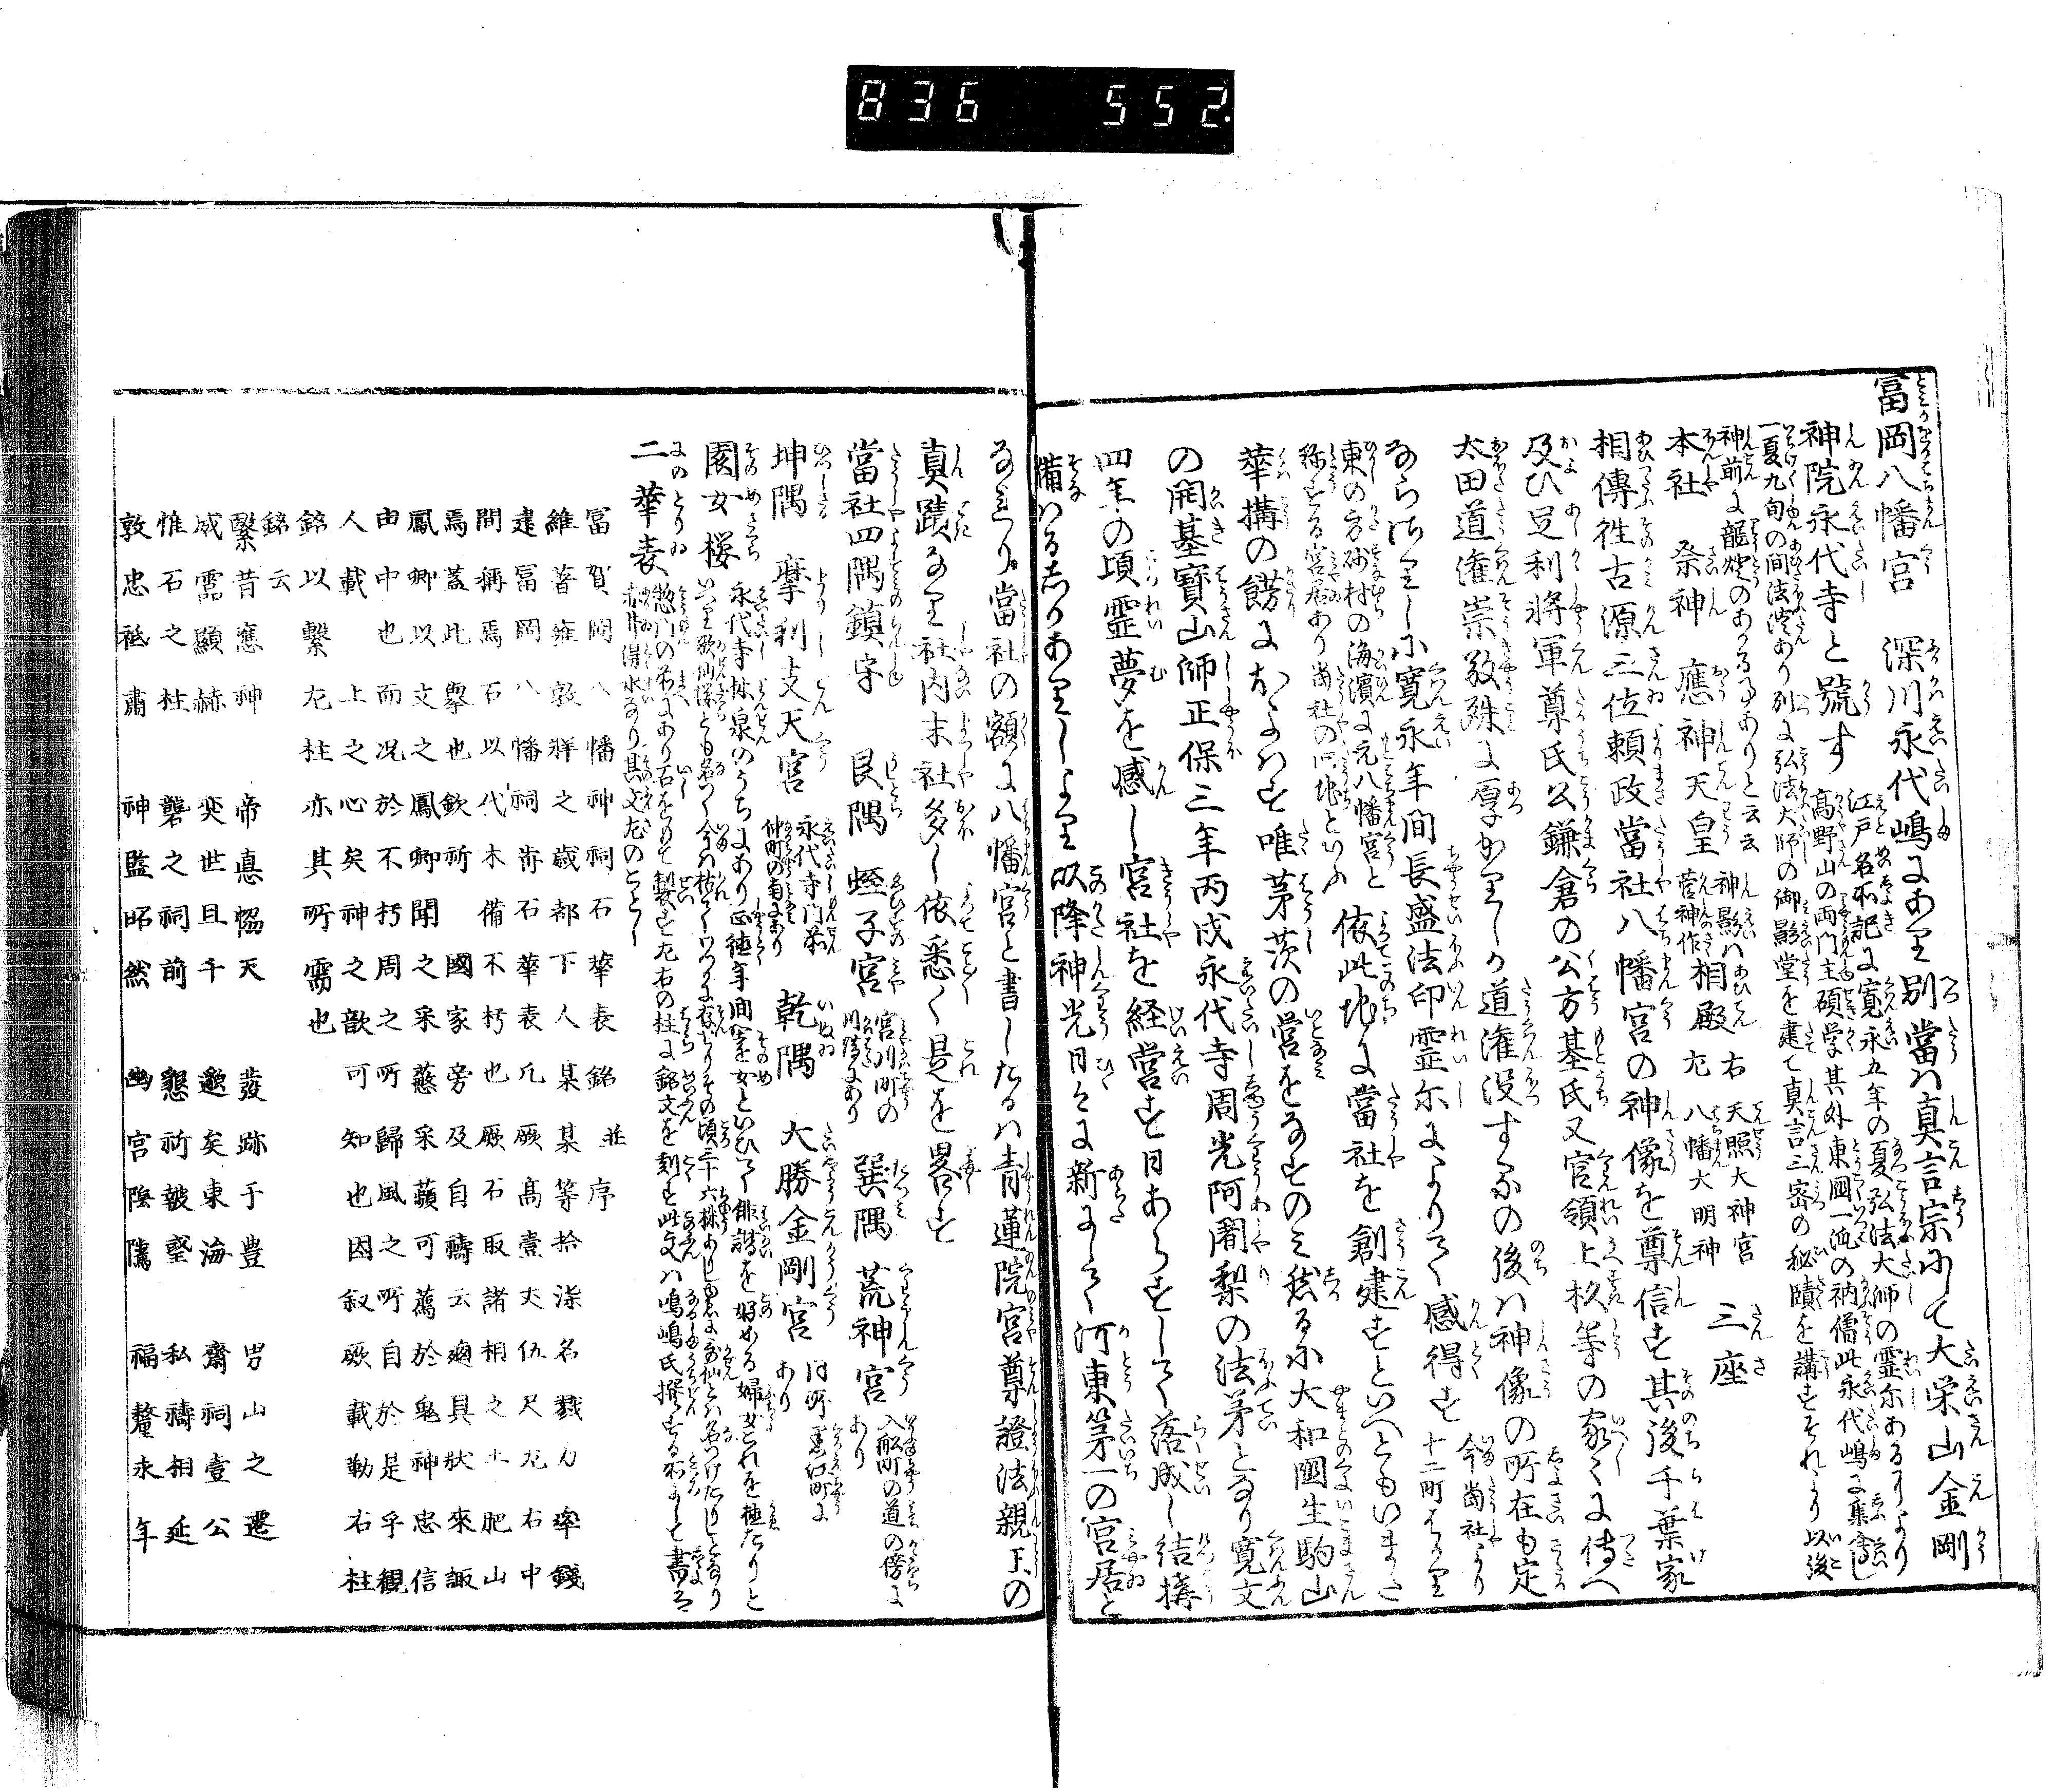 836 552
富岡八幡宮 深川永代嶋にあり別當は真言宗にして大栄山金剛
神院永代寺と號す 江戸名所記に寛永五年の夏弘法大師の霊尓あるにより
高野山の両門主碩学其外東國一派の衲僧此永代嶋に集會し
一夏九旬の間法談あり別に弘法大師の御影堂を建て真言三密の秘賾を講ずそれより以後
神前に龍燈のあかる事ありと云云
本社 祭神 應神天皇 神影は菅神作 相殿 右 天照大神宮 左 八幡大明神 三座
相傳往古源三位頼政當社八幡宮の神像を尊信す其後千葉家
及ひ足利將軍尊氏公鎌倉の公方基氏又官領上杦等の家々に傳へ
太田道潅崇敬殊に厚かりしか道潅没するの後は神像の所在も定
ならさりしに寛永年間長盛法印霊尓によりて感得す 今當社より十二町はかり
東の方砂村の海濱に元八幡宮と称する宮居あり當社の旧地といふ 依此地に當社を創建すといへともいまさ
華搆の餝におよはす唯茅茨の営をなすのミ然るに大和國生駒山
の開基寶山師正保三年丙戌永代寺周光阿闍梨の法㐧となり寛文
四年の頃霊夢を感し宮社を経営す日あらすして落成し結搆
備はるしりありしより以降神光日々に新にして河東第一の宮居と
なれり當社の額に八幡宮と書したるは青蓮院宮尊證法親王の
真蹟なり社内末社多し依悉く是を畧す
當社四隅鎮守 艮隅 蛭子宮 宮川町の川端にあり 巽隅 荒神宮 入船町の道の傍にあり
坤隅 摩利支天宮 永代寺門前仲町の南にあり 乾隅 大勝金剛宮 同所黒江町にあり
園女桜 永代寺林泉のうちにあり正徳年間園女といひて俳諧を好める婦女これを種たりと
いへり歌仙櫻とも名つく今は枯てわつかに存せりその頃三十六株ありし故に歌仙とは名つけたりしとなり
二華表 惣門の前にあり石をもつて製す左右の柱に銘文を刻す此文は鳴嶋氏撰する所にして書は
赤井得水なり其文左のことし
冨賀岡八幡神祠石華表銘 並序
維蒼雍敦牂之歳都下人某某等拾柒名戮力率錢
建冨岡八幡祠歬石華表凢厥髙壹丈伍尺左右中
間稱焉石以代木備不朽也厥石取諸相之土肥山
焉蓋此擧也欽祈 國家旁及自禱云爾具狀來諏
鳳卿以文之鳳卿聞之采蘩采蘋可薦於鬼神忠信
由中也而况於不朽周之所歸風之所自於是乎觀
人載心上之心矣神之歆可知也因叙厥載勒右柱
銘以繋左柱亦其所需也
銘云
繄昔應神 帝悳協天 發跡于豊 男山之遷
威霛顯赫 奕世且千 邈矣東海 齋祠壹公
惟石之柱 礱之祠前 懇祈皷壂 私禱相延
敦忠祗肅 神監昭然 幽宮陰隲 福釐永年